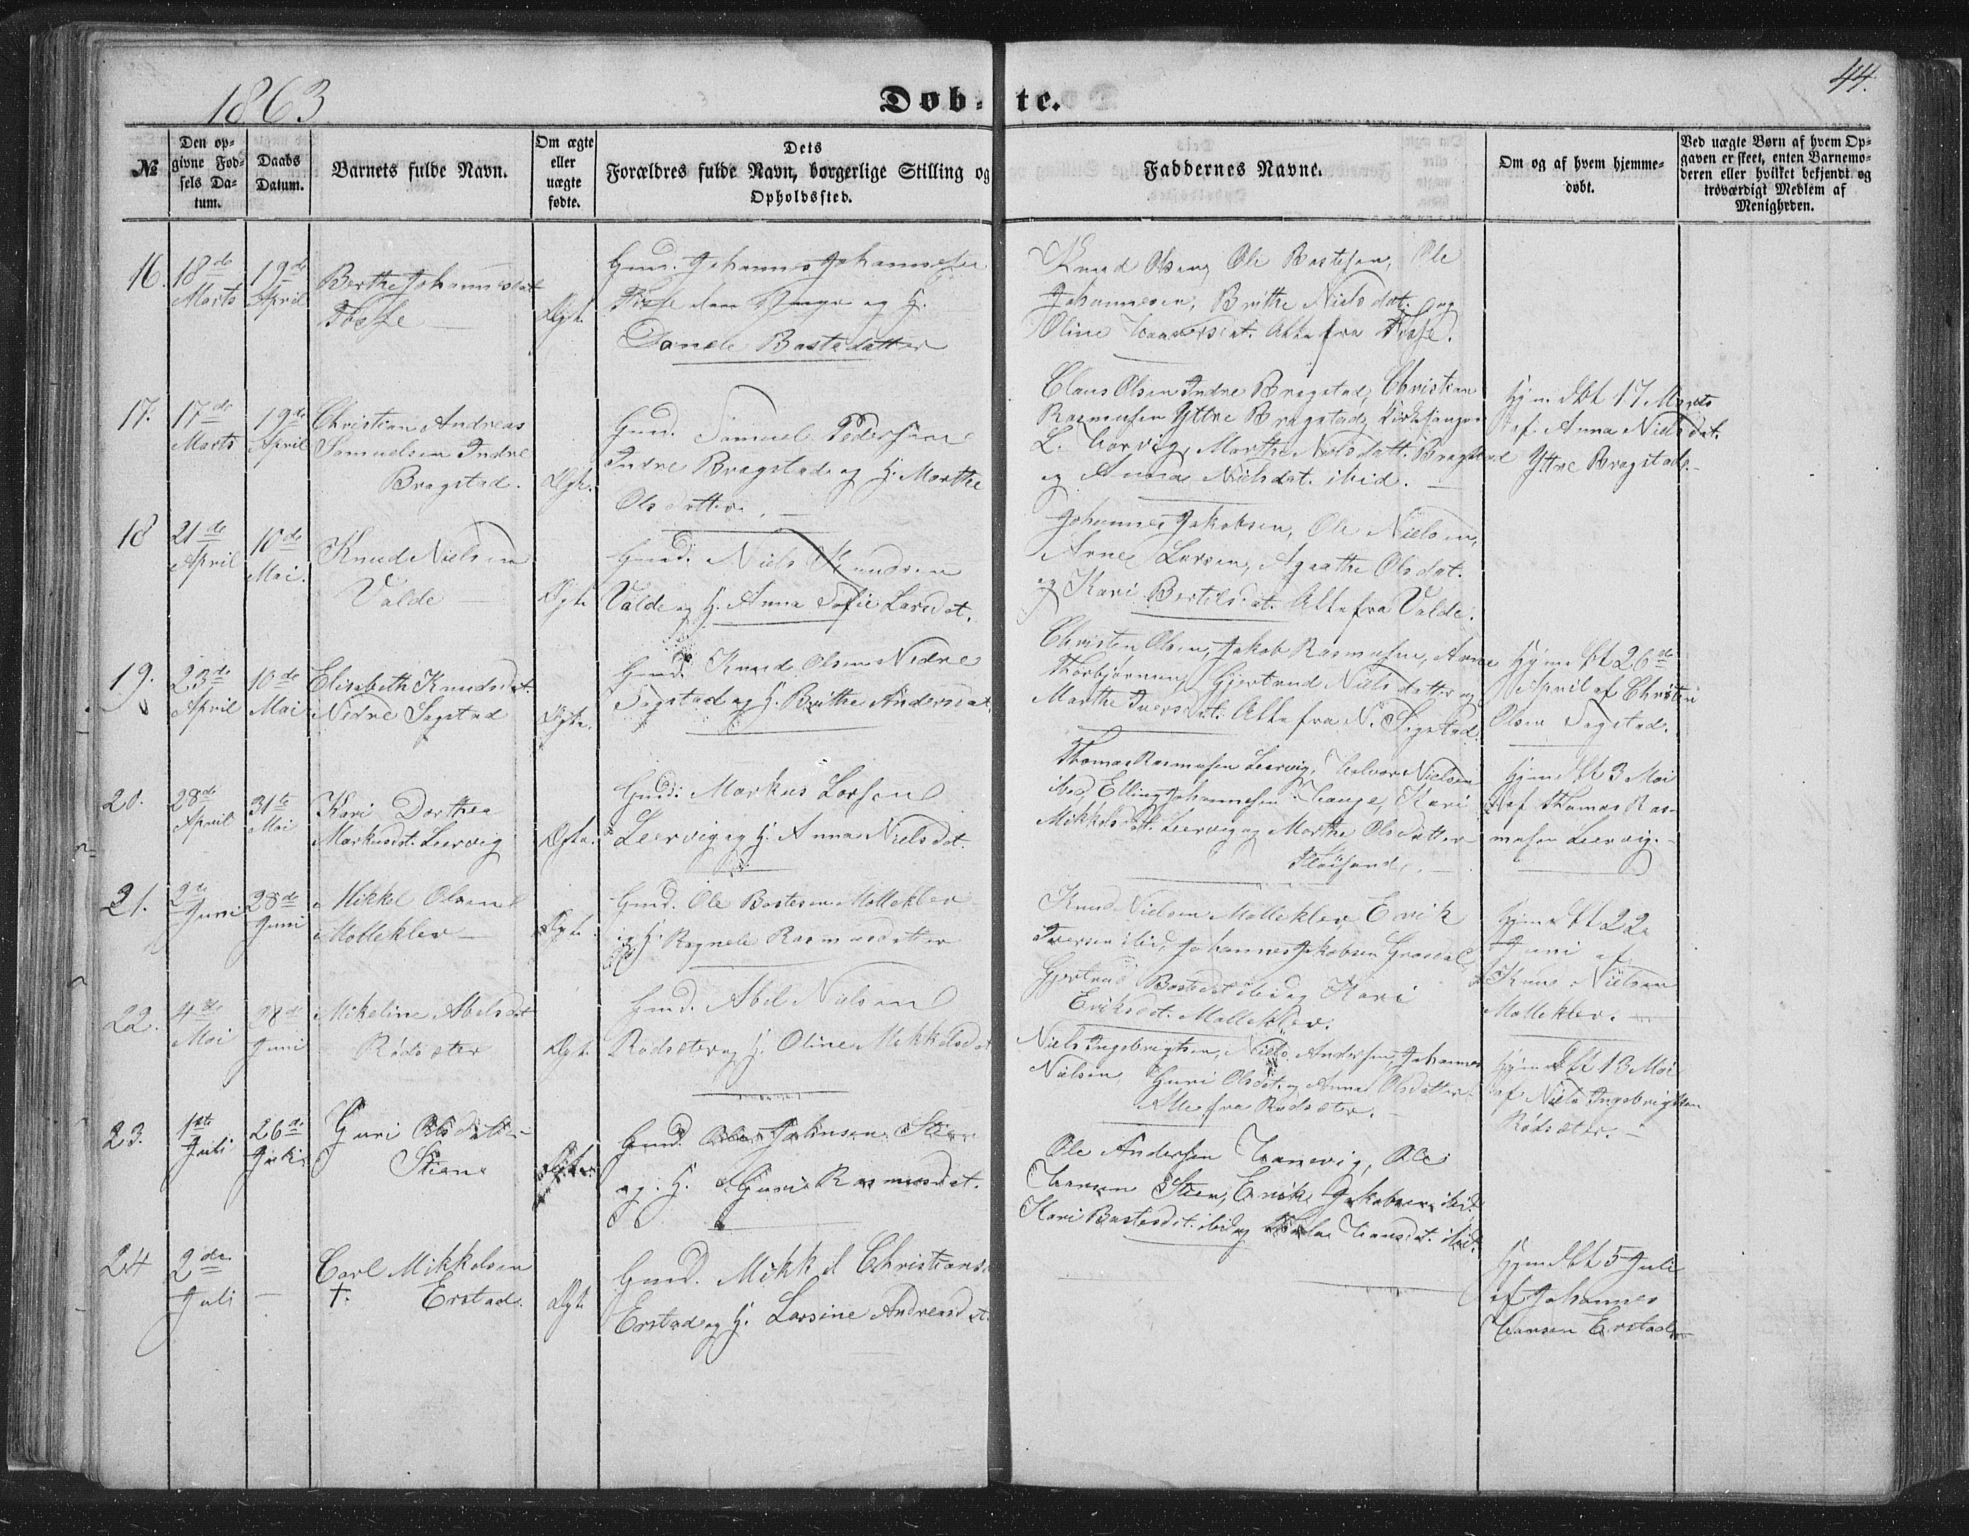 1863.
Døbte.
44.
№
Den opgivne Fødsels Datum.
Daabs Datum.
Barnets fulde Navn.
Om ægte eller uægte fødte.
Dets Forældres fulde Navn, borgerlige Stilling og Opholdssted.
Faddernes Navne.
Om og af hvem hjemmedøbt.
Ved uægte Børn af hvem Opgaven er skeet, enten Barnemoderen eller hvilket bekjendt og troværdigt Medlem af Menigheden.
16.
18de Marts
19de April
Berthe Johannesdat
Fosse
Ægt.
Gmd. Johannes Johannesen
og H.
Bastedatter
Knud Olsen, Ole Bastesen, Ole
Johannesen, Brithe Nielsdat. og
Oline Alle fra Fosse.
17.
17de Marts
19de April
Christian Andreas
Samuelsen Indre
Bragstad.
Ægte.
Gmd. Samuel Pedersen
Indre Bragstad og H. Marthe
Olsdatter.
Claus Olsen Indre Bragstad, Christian
Rasmusen Yttre Bragstad, Kirkesanger
L. Marthe Nielsdatt. Bragstad
og Anna Nielsdat. ibid.
Hjemdbt 17 Marts
af Anna Nielsdat.
Yttre Bragstad.
18
21de April
10de Mai.
Knud Nielsen
Valde
Ægte.
Gmd. Niels Knudsen
Valde og H. Anna Sofie Larsdat.
Johannes Jakobsen, Ole Nielsen,
Arne Larsen, Agathe Olsdat.
og Kari Bertelsdat. Alle fra Valde.
19.
23de April
10de Mai
Elisabeth Knudsdat.
Nedre Sogstad
Ægte.
Gmd. Knud Olsen Nedre
Sogstad og H. Brithe Andersdat.
Christen Olsen, Jakob Rasmusen, Arne
Thorbjørnsen, Gjertrud Nielsdatter og
Marthe Iversdat. Alle fra N. Sogstad.
Hjemdbt 26de
April af Christen
Olsen Sogstad.
20.
28de April
31te Mai
Kari Dorthea
Markusdt. Leervig
Ægte.
Gmd. Markus Larsen
Leervig og H. Anna Nielsdat.
Thomas Rasmusen Leervig, Halvor Nielsen
ibid. Elling Johannesen Kari
Mikkelsdt. Leervig og Marthe Olsdatter
Hjemdbt 3 Mai
af Thomas Ras-
musen Leervig.
21.
2de Juni
28de Juni
Mikkel Olsen
Mølleklev
Ægt.
Gmd. Ole Bastesen Mølleklev
og H. Ragnele Rasmusdatter
Knud Nielsen Mølleklev, Erik
Iversen ibid, Johannes Jakobsen
Gjertrud Bastesdt ibid og Kari
Eriksdt. Mølleklev.
Hjemdbt 22
Juni af
Knud Nielsen
Mølleklev.
22.
4de Mai
28de Juni
Mikeline Abelsdt
Rødsæter
Ægt.
Gmd. Abel Nielsen
Rødsæter og H. Oline Mikkelsdat
Niels Ingebrigtsen, Niels Andersen, Johannes
Nielsen Guri Olsdt. og Anna Olsdatter
Alle fra Rødsæter.
Hjemdbt 13 Mai
af Niels Ingebrigtsen
Rødsæter.
23.
1ste Juli
26de Juli
Guri Olsdatter
Steen
Ægte.
Gmd. Ole Johnsen Steen
og H. Guri Rasmusdat.
Ole Andersen Ole
Hansen Steen, Erik Jakobsen ibid.
Kari Bastesdt. ibid og Hansdat. ibid.
24
2de Juli
–
Carl Mikkelsen
†. Erstad.
Ægt.
Gmd. Mikkel Christians
Erstad og H. Larsine Andreasdat.
Hjemdbt 5 Juli
af Johannes
Hansen Erstad.